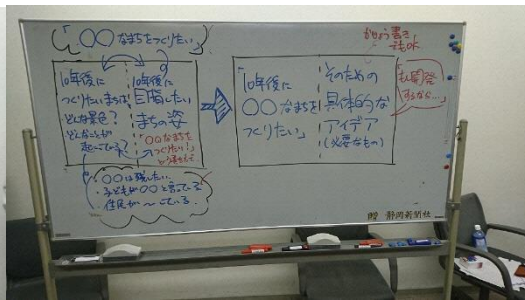 「〇〇なまちをつくりたい」
10年後に
つくりたいまちは
どんな景色?
どんなことが
起こっている?
10年後に
目指したい
まちの姿
「〇〇なまちを
つくりたい!」
〇〇は残したい
・子どもが〇〇と言っている
・住民が〜っている
「10年後に
〇〇なまちを
つくりたい」
そのための
具体的な
アイデア
(必要なもの)
かじょう書き
でもOK
「も
開発
するなら…」
贈 静岡新聞社